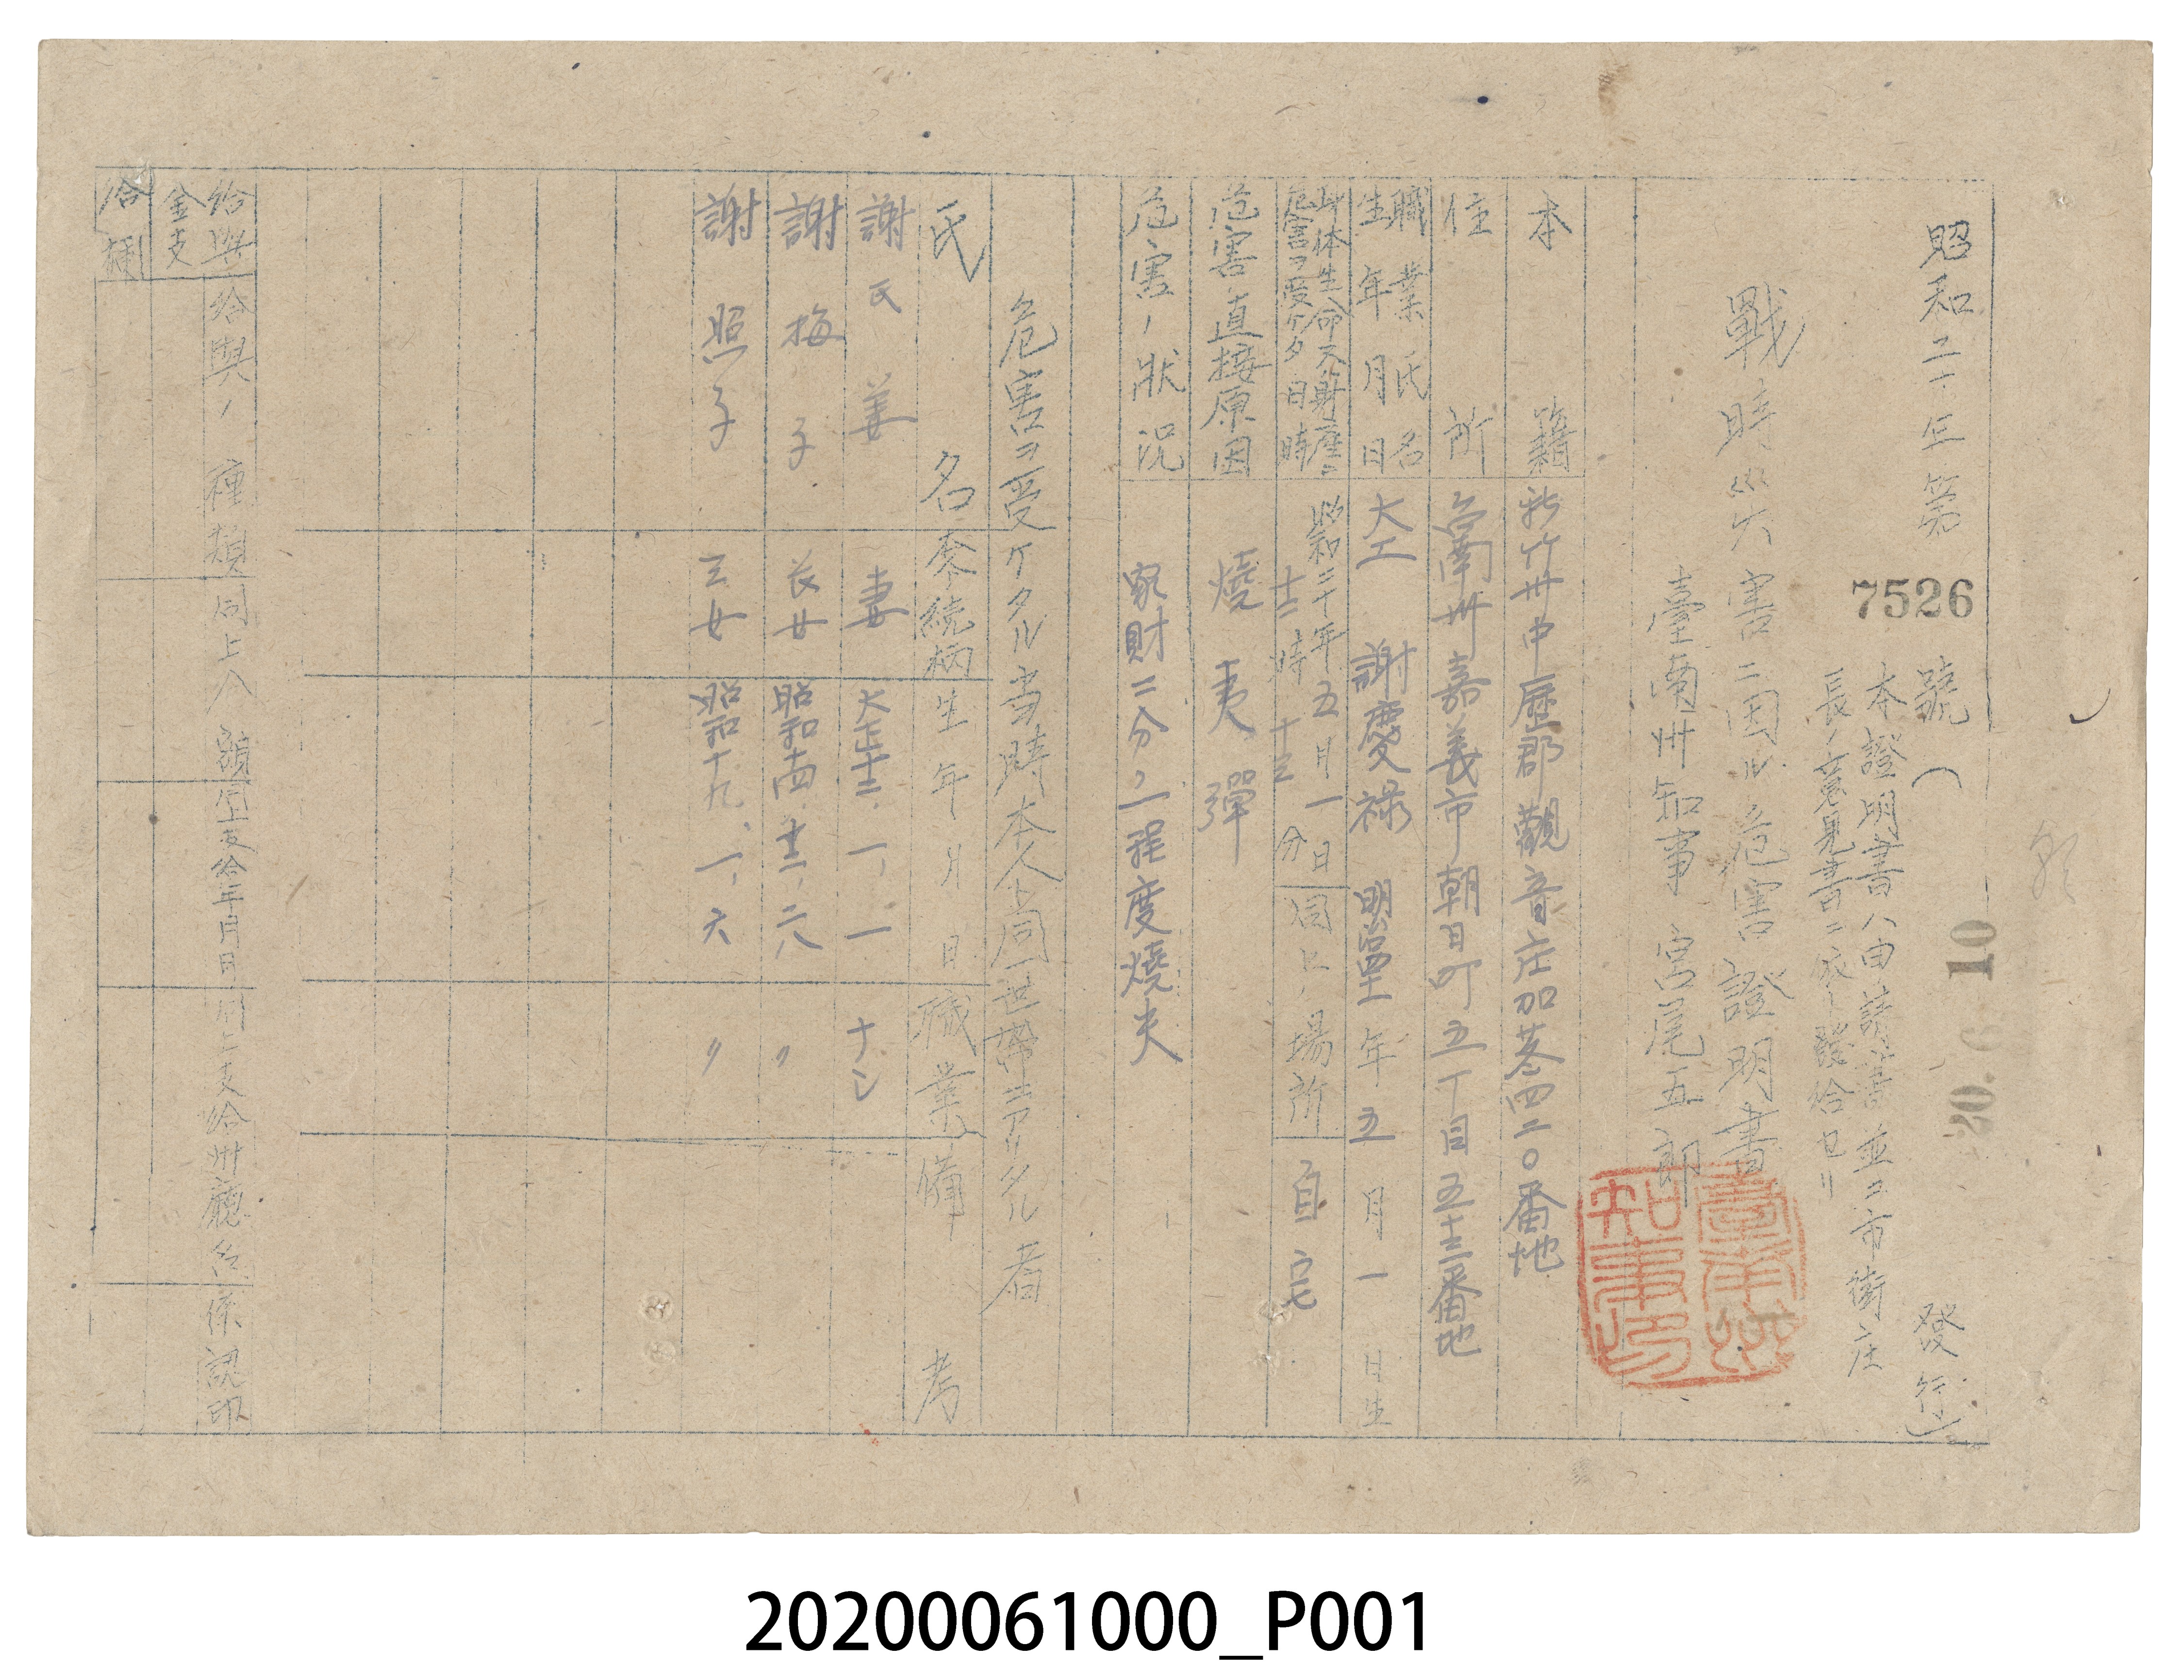 昭和二〇年第7526號(20. 6. 10 發行)
本證明書ハ申請書並ニ市街庄
長ノ意見書ニ依リ發給セリ
戰時災害ニ因ル危害證明書
臺南州知事 宮尾五郎
本籍 新竹州中壢郡觀音庄加苳四二〇番地
住所 台南州嘉義市朝日町五丁目五十三番地
職業氏名 大工 謝慶祿
生年月日 年五月一日生
身体生命又ハ財産ニ危害ヲ受ケタ日時 昭和二十年五月一日 十二時十三分
同上ノ場所 自宅
危害直接原因 燒夷彈
危害ノ狀況 家財二分ノ一程度燒失
危害ヲ受ケタル当時本人ト同一世帶ニアリタル者
氏名 続柄 生年月日 職業 備考
謝氏姜 妻 大正十二、一、一 ナシ
謝梅子 長女 昭和十四、十二、二八 〃
謝照子 三女 昭和十九、一、六 〃
給與金支給
種
給與ノ種類
同上ノ金額
同上支給年月日
支給州廳名
係認印
臺南州知事印
20200061000_P001